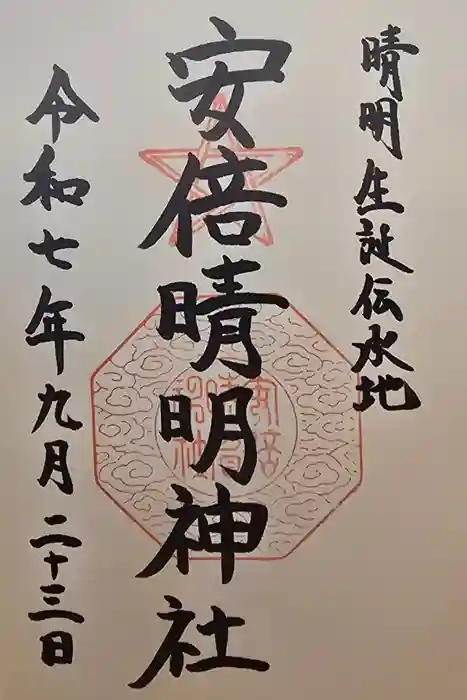 晴明生誕伝水地
安倍晴明神社
令和七年九月二十三日